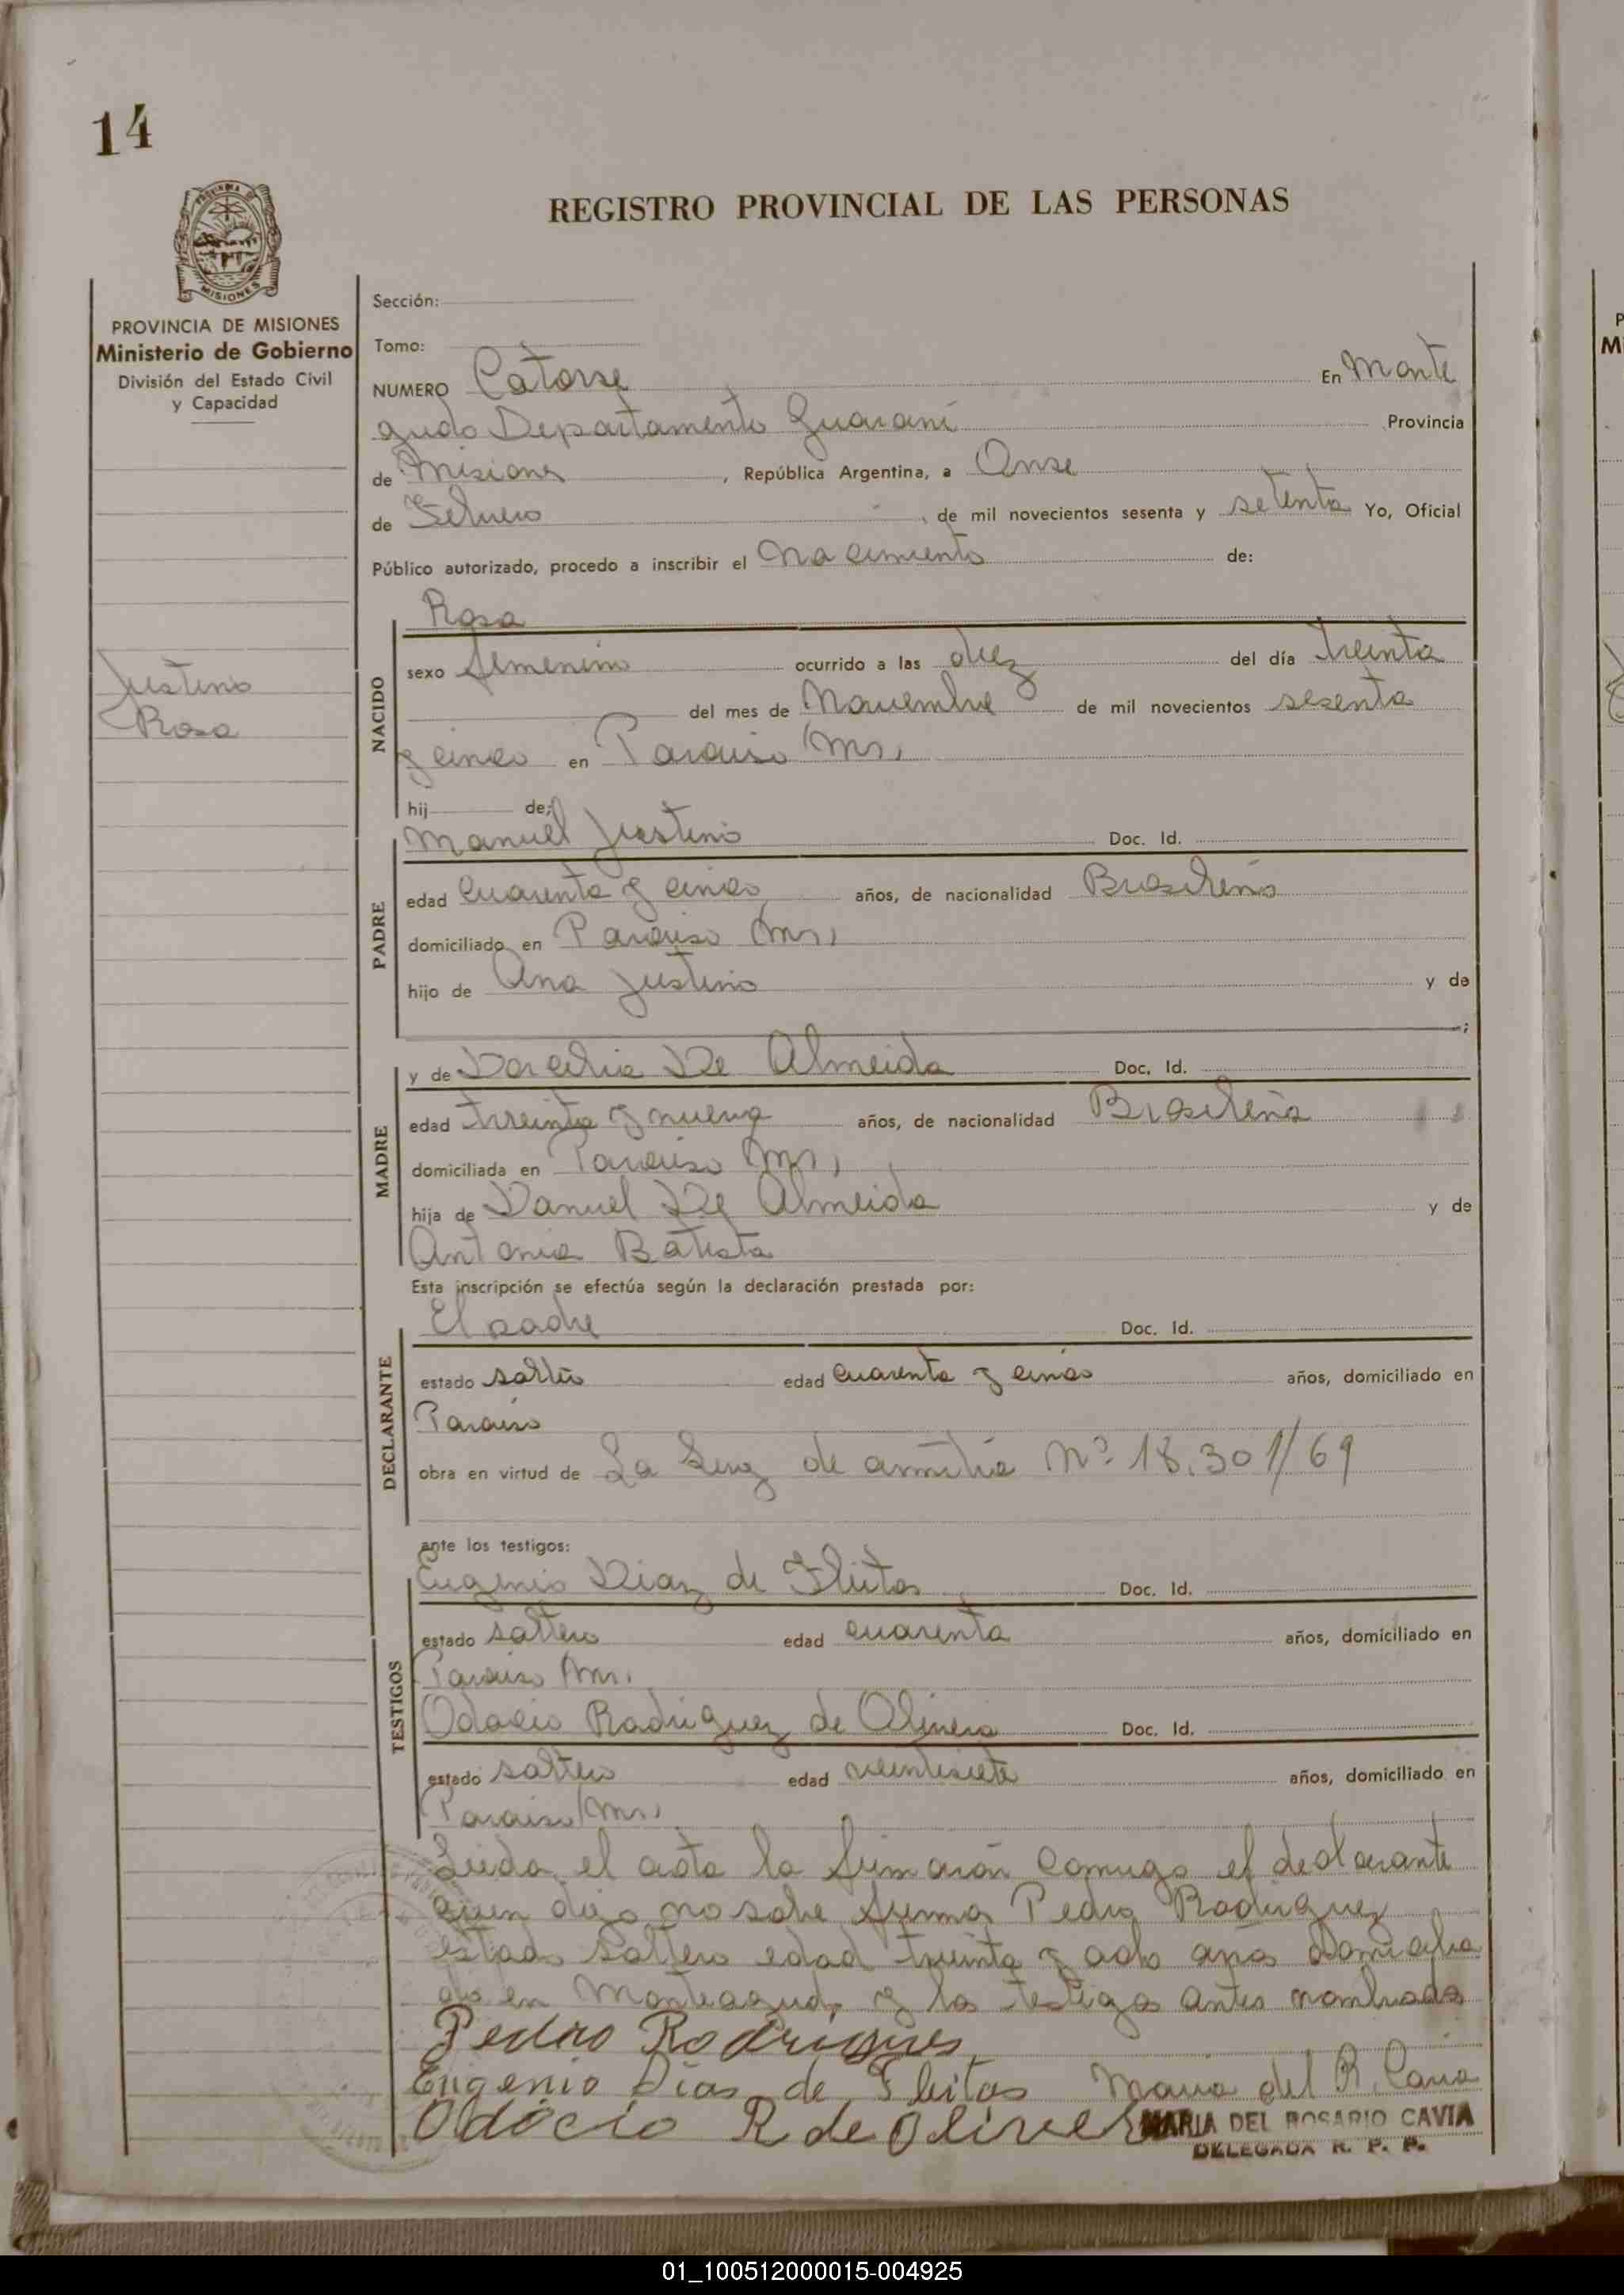 14
PROVINCIA DE MISIONES
REGISTRO PROVINCIAL DE LAS PERSONAS
PROVINCIA DE MISIONES
Ministerio de Gobierno
División del Estado Civil
y Capacidad
Justino
Rosa
Sección:
Tomo:
NUMERO Catorse En Monte
agudo Departamento Guarani Provincia
de Misiones, República Argentina, a Onse
de Febrero, de mil novecientos sesenta y setenta Yo, Oficial
Público autorizado, procedo a inscribir el Nacimiento de:
NACIDO
Rosa
sexo femenino ocurrido a las diez del día treinta
del mes de Noviembre de mil novecientos sesenta
y cinco en Paraiso Mns,
hij de;
PADRE
Manuel Justino Doc. Id.
edad Cuarenta y cinco años, de nacionalidad Brasileño
domiciliado en Paraiso Mns,
hijo de Ana Justino y de
MADRE
y de Dorcelia De Almeida Doc. Id.
edad treinta y nueve años, de nacionalidad Brasileña
domiciliada en Paraiso Mns,
hija de Danuel De Almeida y de
Antonia Batista
Esta inscripción se efectúa según la declaración prestada por:
DECLARANTE
El padre Doc. Id.
estado soltero edad cuarenta y cinco años, domiciliado en
Paraiso
obra en virtud de La Ley de amnitia Nº 18.301/69
ante los testigos:
TESTIGOS
Eugenio Diaz de Fleitas Doc. Id.
estado soltero edad cuarenta años, domiciliado en
Paraiso Mns.
Odacio Rodriguez de Olivera Doc. Id.
estado soltero edad veintisiete años, domiciliado en
Paraiso Mns,
Leida el acta la firmaron comigo el declarante
quien dijo no sabe firma Pedro Rodriguez
estado soltero edad treinta y ocho años Domicilia
do en Monteagudo y los testigos antes nombrados
Pedro Rodrigues
Eugenio Dias de Fleitas Maria del R. Cavia
Odócio R de Oliver
MARIA DEL ROSARIO CAVIA
DELEGADA R. P. P.
01_100512000015-004925